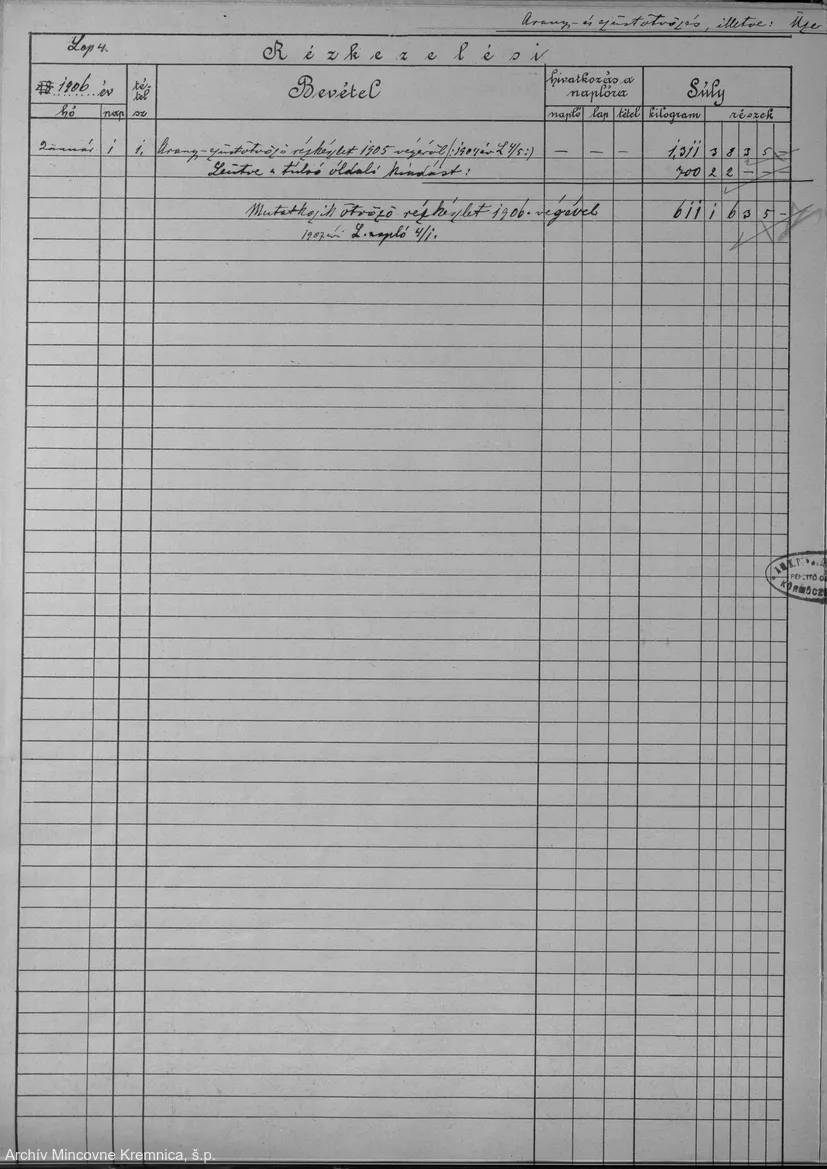 Arany- és ezüstötvözés, illetve:
Lap 4.
Rézkezelési
1906 év
té-
tel
sz
Bevétel
hivatkozás a
naplóra
Súly
hó nap napló lap tétel kilogram részek
Január 1 1. Arany-ezüstötvöző rézkészlet 1905 végéről — — — 1,311 3 8 3 5 —
Leütve a túlsó oldali kiadást: 700 2 2 — — —
Mutatkozik ötvöző rézkészlet 1906. végével 611 1 6 3 5 —
1907 évi L. napló 4/1.
KÖRMÖCZ
Archív Mincovne Kremnica, š.p.